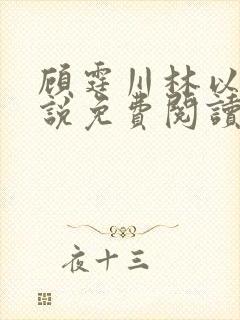 顾霆川林以
說免費閱讀
夜十三